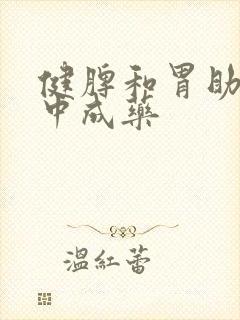 健脾和胃助
中成藥
溫紅蕾